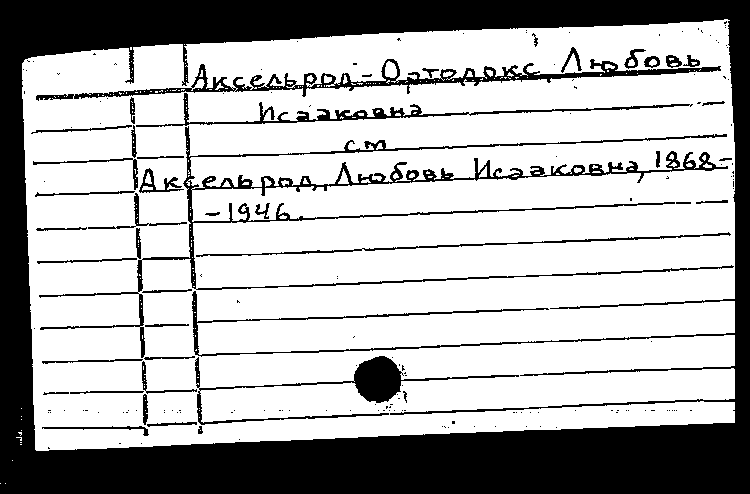 Аксельрод-Ортодокс, Любовь
Исааковна
см
Аксельрод, Любовь Исааковна, 1868-
-1946.